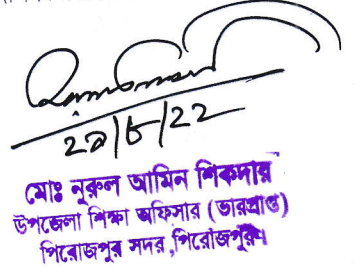 ২৯/৮/২২
মোঃ নুরুল আমিন শিকদার
উপজেলা শিক্ষা অফিসার (ভারপ্রাপ্ত)
পিরোজপুর সদর,পিরোজপুর।